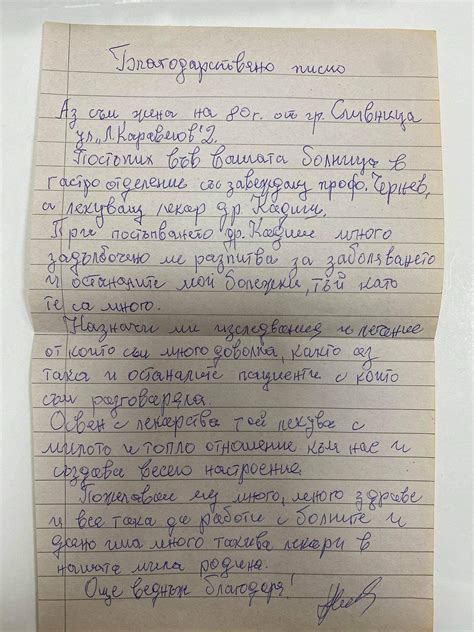 Благодарствено писмо
Аз съм жена на 80г. от гр. Сливница
ул. „Л. Каравелов" 2.
Постъпих във вашата болница в
гастро отделение със завеждащ проф. Чернев,
а лекуващ лекар др. Кадин.
При постъпването др. Кадие много
задълбочено ме разпитва за заболяването
и останалите мои болежки, тъй като
те са много.
Назначи ми изследвания и лечение
от които съм много доволна, както аз
така и останалите пациенти с които
съм разговаряла.
Освен с лекарства той лекува с
милото и топло отношение към нас и
създава весело настроение.
Пожелавам му много, много здраве
и все така да работи с болните и
дано има много такива лекари в
нашата мила родина.
Още веднъж благодаря!